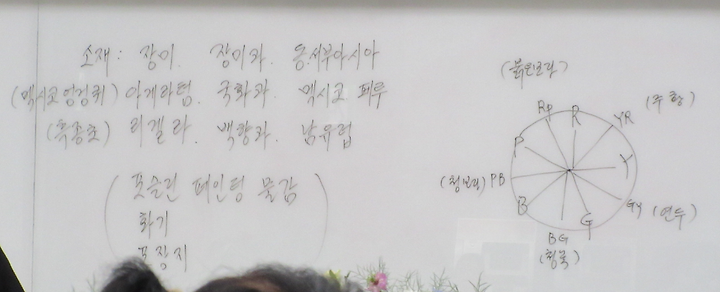 소재: 장미. 장미과. 동.서부아시아
(멕시코엉겅퀴) 아게라텀. 국화과. 멕시코 페루
(흑종초) 니겔라. 백합과. 남유럽
포슬린 페인팅 물감
화기
포장지
(붉은보라)
RP R YR (주황)
P Y
(청보라) PB
B G GY (연두)
BG
(청록)